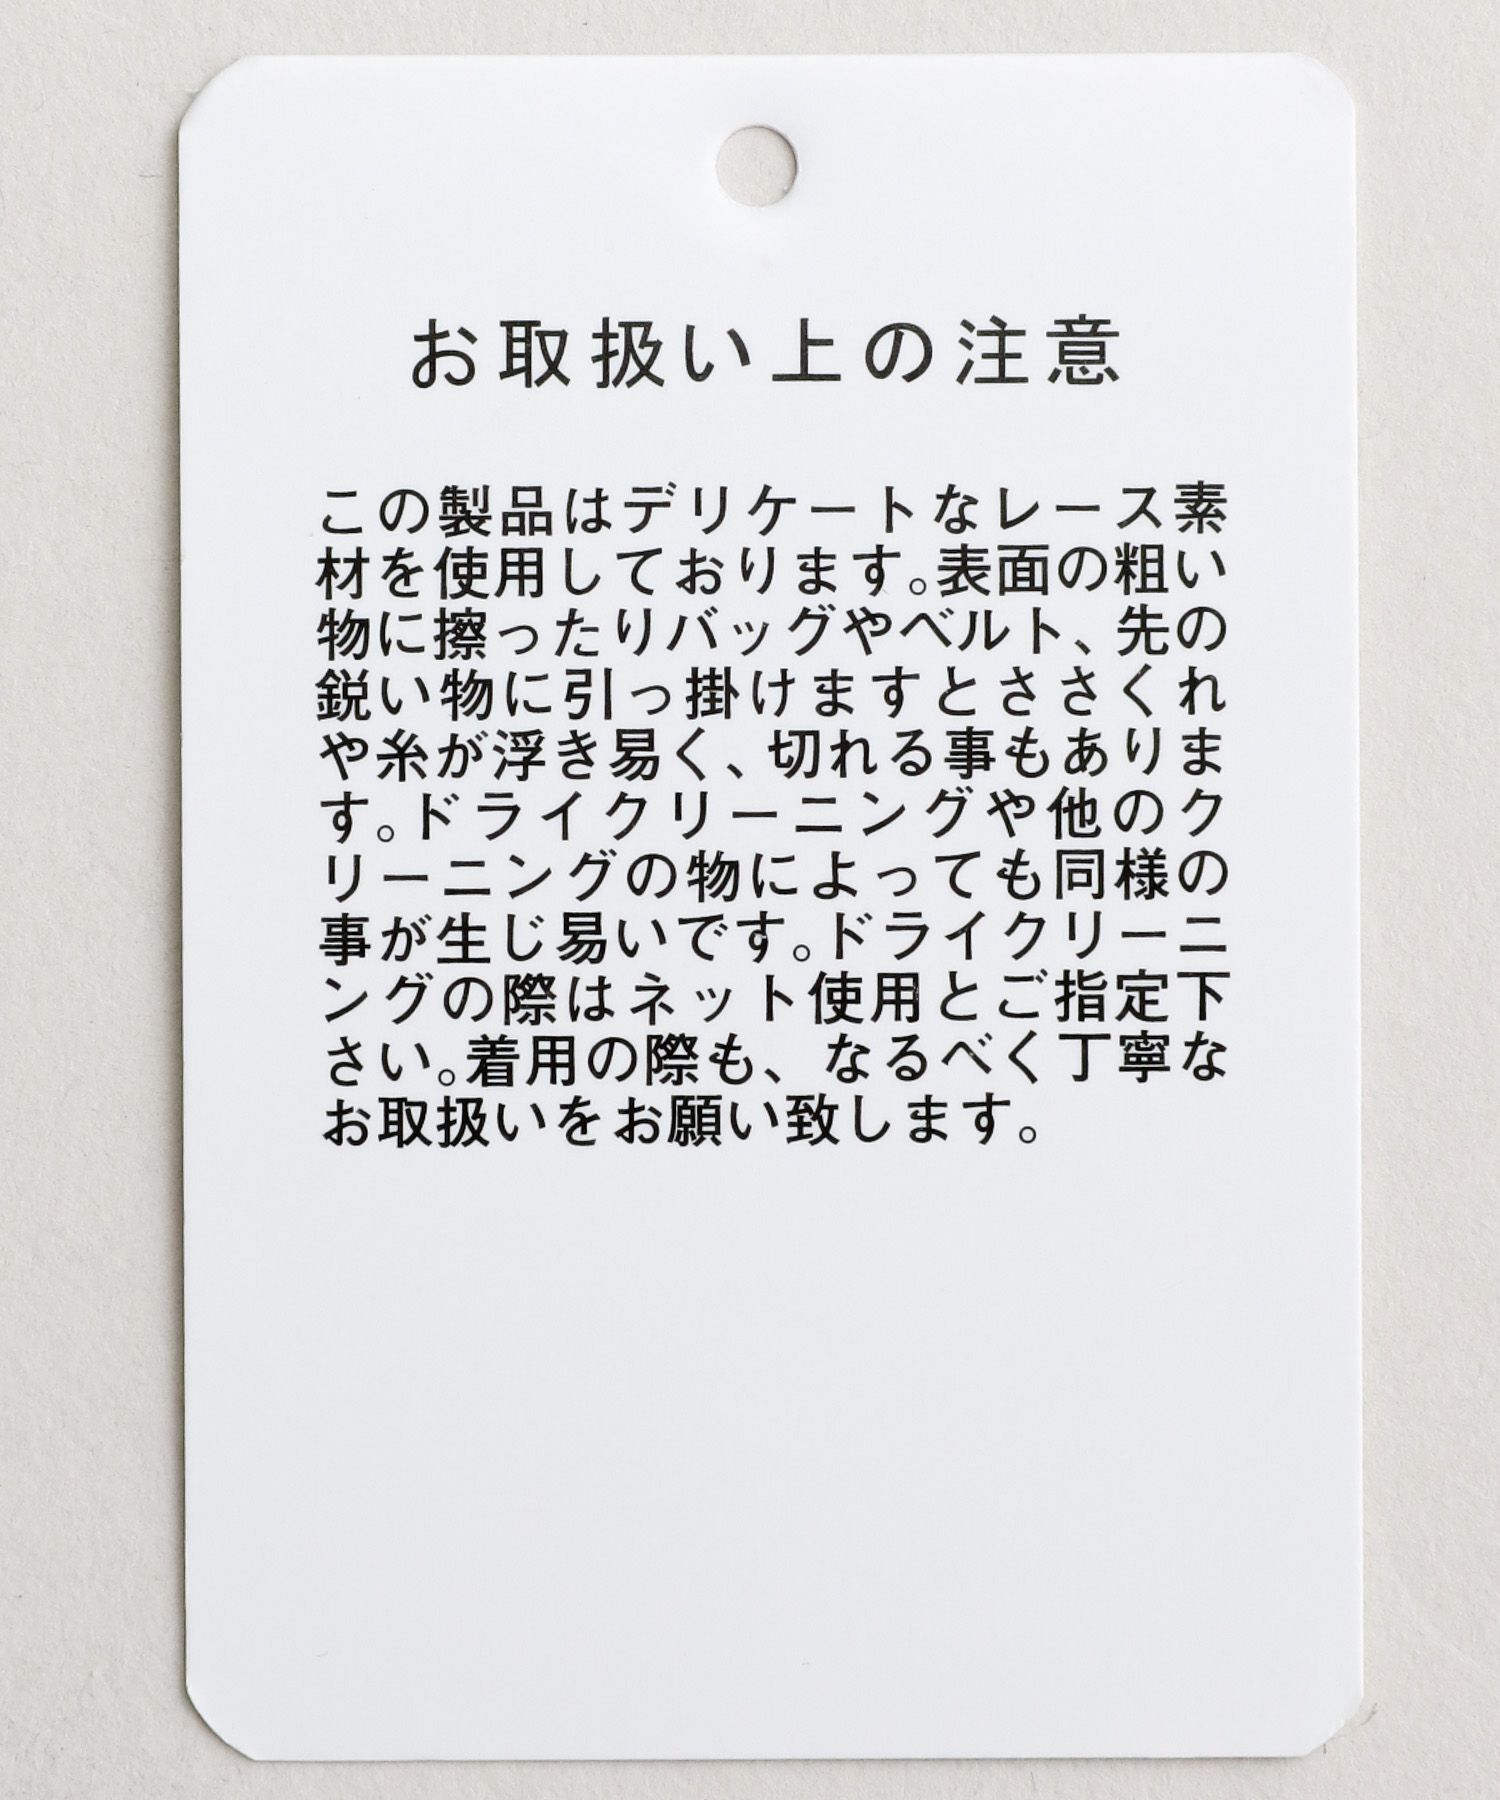 お取扱い上の注意
この製品はデリケートなレース素
材を使用しております。表面の粗い
物に擦ったりバッグやベルト、先の
鋭い物に引っ掛けますとささくれ
や糸が浮き易く、切れる事もありま
す。ドライクリーニングや他のク
リーニングの物によっても同様の
事が生じ易いです。ドライクリーニ
ングの際はネット使用とご指定下
さい。着用の際も、なるべく丁寧な
お取扱いをお願い致します。